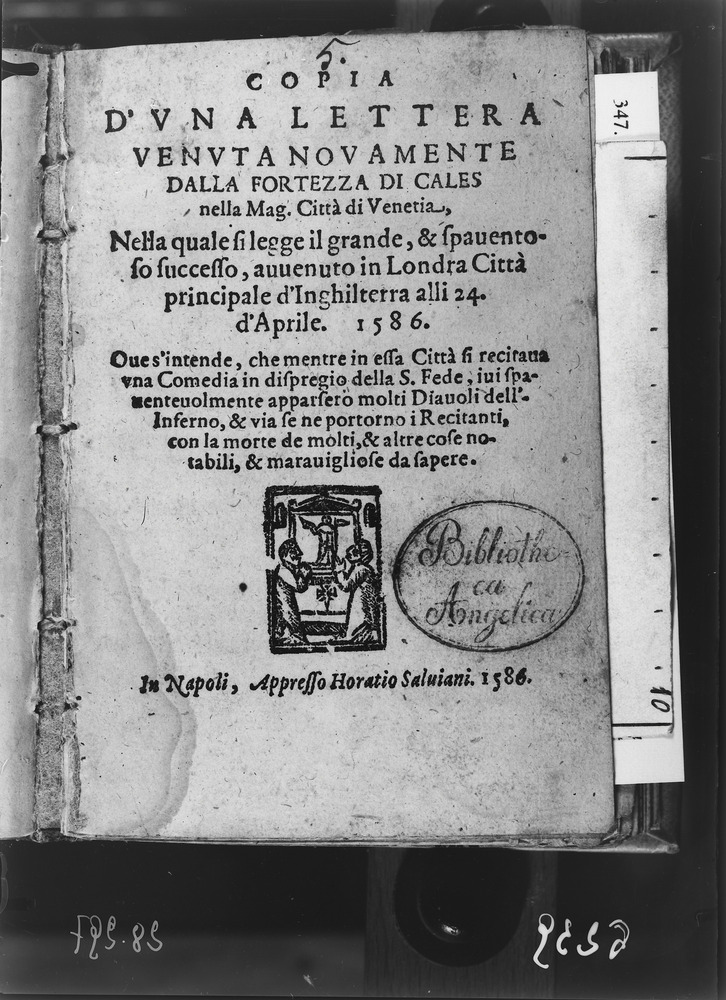 5.
COPIA
D'VNA LETTERA
VENVTA NOVAMENTE
DALLA FORTEZZA DI CALES
nella Mag. Città di Venetia,
Nella quale ſi legge il grande, & ſpauento-
ſo ſucceſſo, auuenuto in Londra Città
principale d'Inghilterra alli 24.
d'Aprile. 1586.
Oue s'intende, che mentre in eſſa Città ſi recitaua
vna Comedia in diſpregio della S. Fede, iui ſpa-
uenteuolmente apparſero molti Diauoli dell'-
Inferno, & via ſe ne portorno i Recitanti,
con la morte de molti, & altre coſe no-
tabili, & marauiglioſe da ſapere.
Bibliothe-
ca
Angelica
In Napoli, Appreſſo Horatio Saluiani. 1586.
347.
10